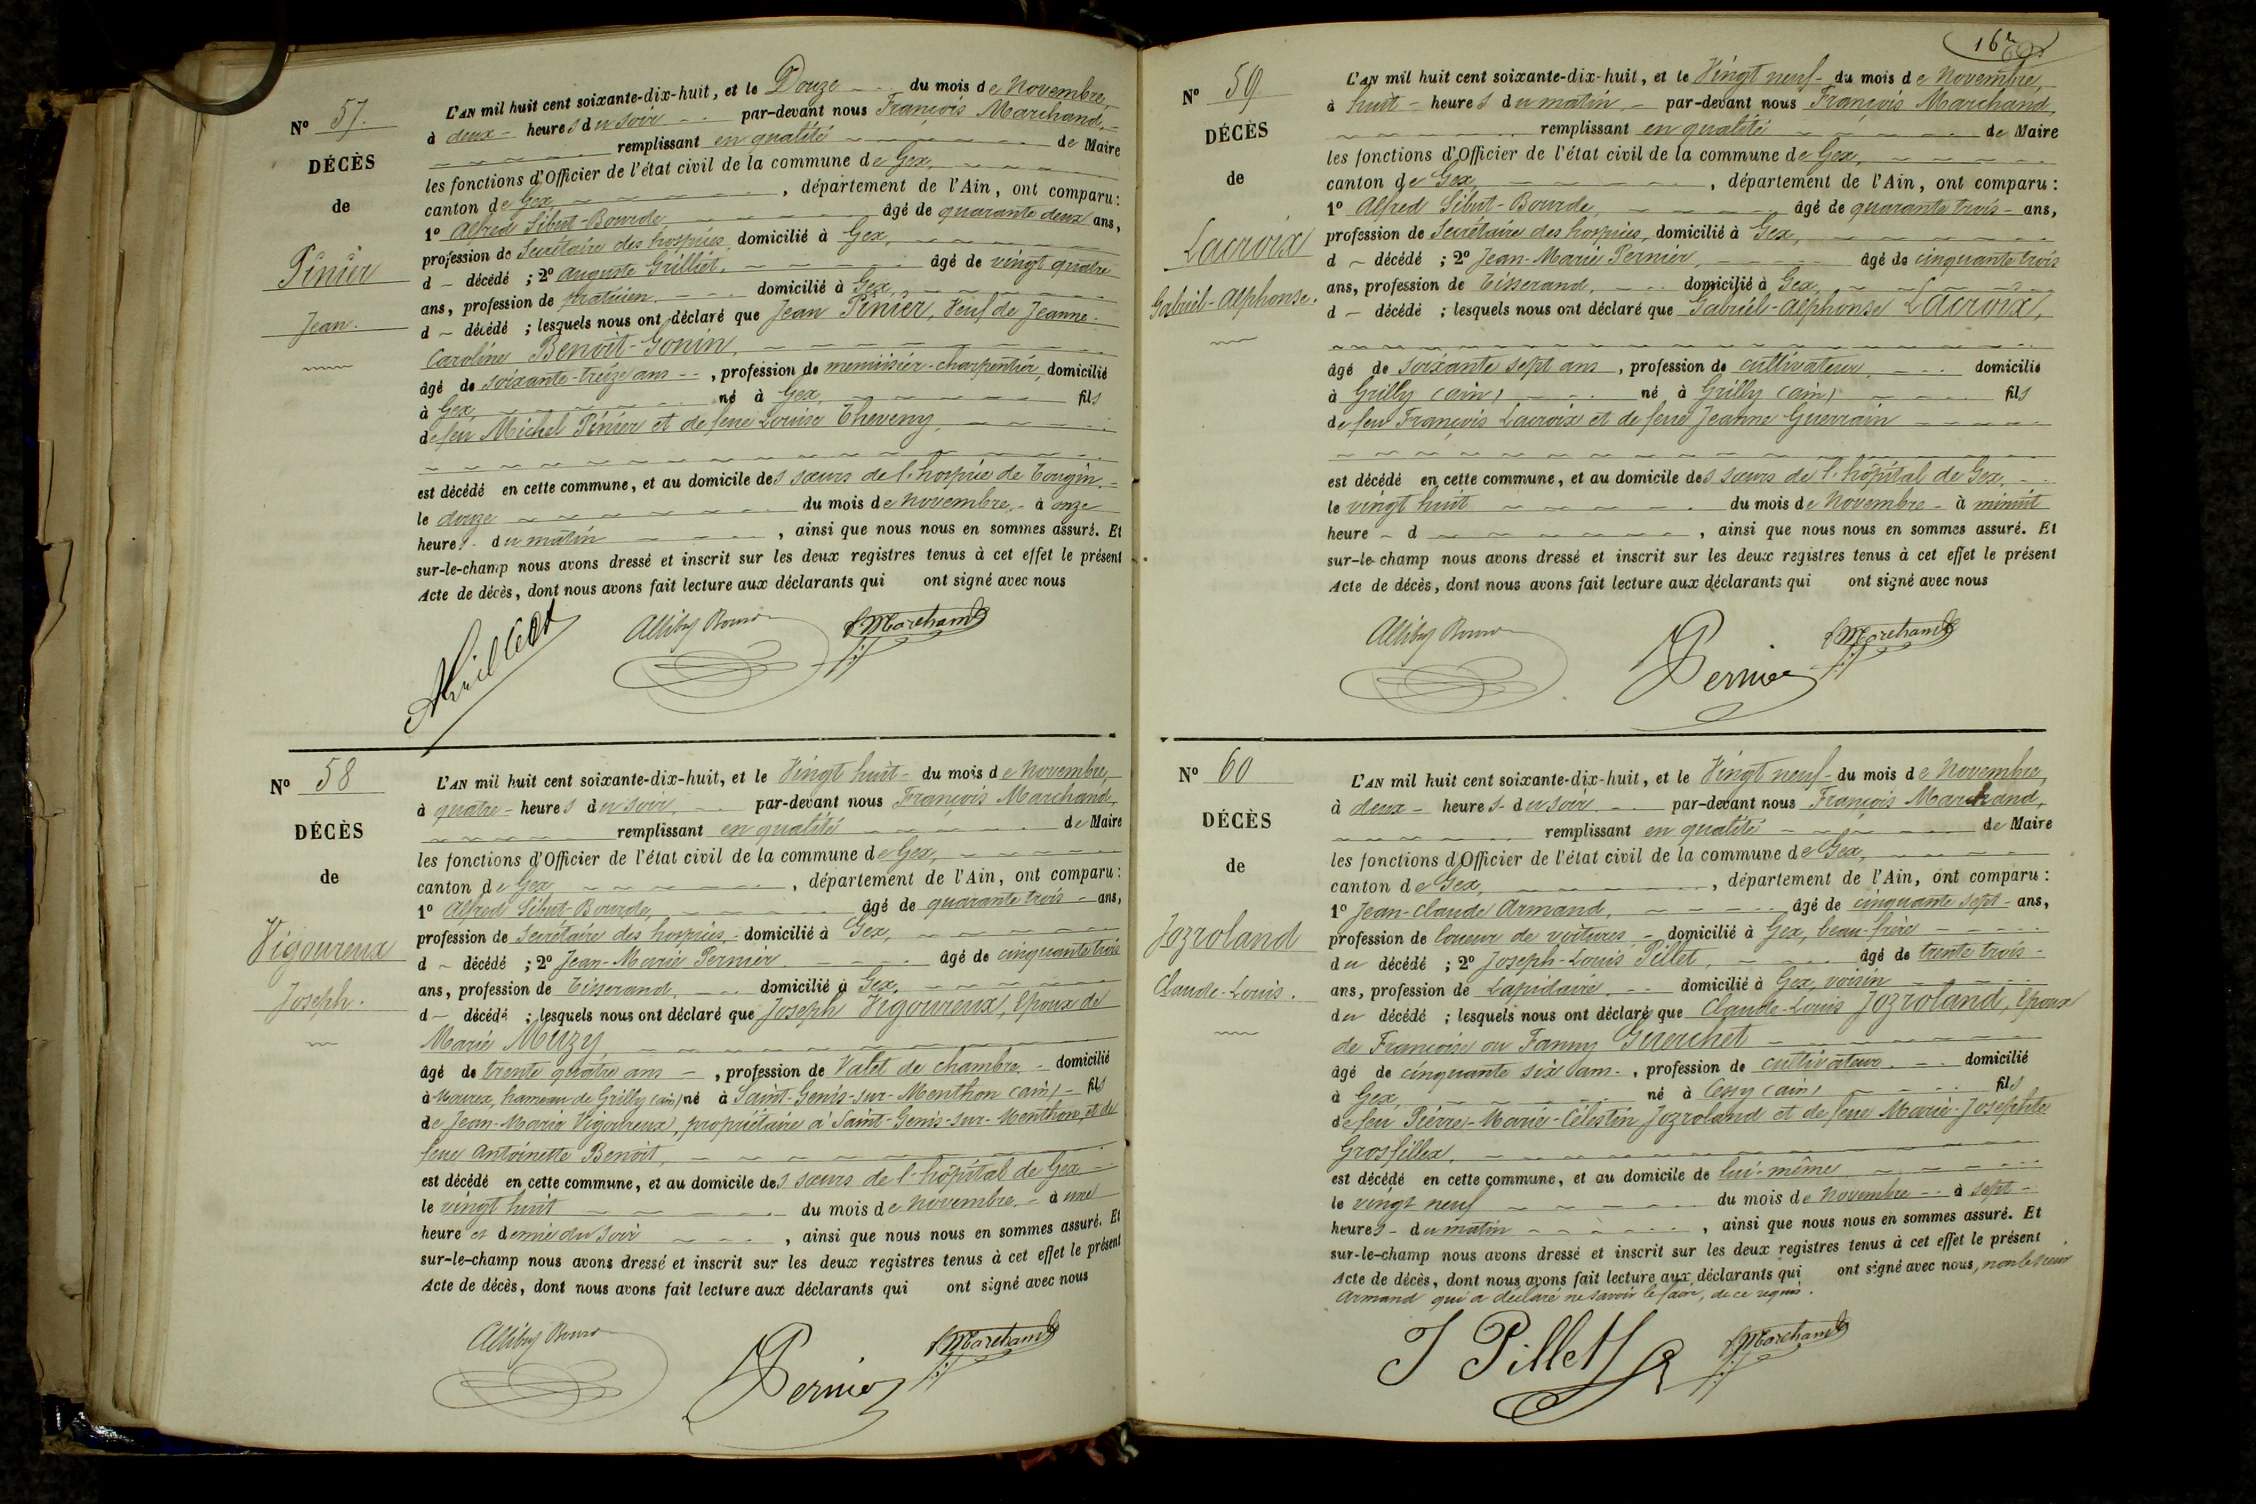 Nº 57.
DÉCÈS
de
Pinier
Jean.
L'AN mil huit cent soixante-dix-huit, et le Douze du mois de Novembre,
à deux heures du soir par-devant nous François Marchand,
remplissant en qualité de Maire
les fonctions d'Officier de l'état civil de la commune de Gex,
canton de Gex, département de l'Ain, ont comparu:
1º Alfred Sibut-Bourde âgé de quarante deux ans,
profession de Secrétaire des hospices, domicilié à Gex,
d décédé ; 2º Auguste Grilliet, âgé de vingt quatre
ans, profession de praticien domicilié à Gex,
d décédé ; lesquels nous ont déclaré que Jean Pinier, Veuf de Jeanne-
Caroline Benoît-Gonin,
âgé de soixante-treize ans, profession de menuisier-charpentier, domicilié
à Gex, né à Gex, fils
de feu Michel Pinier et de feue Louise Theveny,
est décédé en cette commune, et au domicile des sœurs de l'hospice de Tougin,
le douze du mois de novembre à onze
heures du matin, ainsi que nous nous en sommes assuré. Et
sur-le-champ nous avons dressé et inscrit sur les deux registres tenus à cet effet le présent
Acte de décès, dont nous avons fait lecture aux déclarants qui ont signé avec nous
Marchand
Nº 58
DÉCÈS
de
Vigoureux
Joseph.
L'AN mil huit cent soixante-dix-huit, et le Vingt huit du mois de novembre,
à quatre heures du soir, par-devant nous François Marchand,
remplissant en qualité de Maire
les fonctions d'Officier de l'état civil de la commune de Gex,
canton de Gex, département de l'Ain, ont comparu:
1º Alfred Sibut-Bourde, âgé de quarante trois ans,
profession de Secrétaire des hospices, domicilié à Gex,
d décédé ; 2º Jean-Marie Pernier âgé de cinquante trois
ans, profession de Tisserand, domicilié à Gex,
d décédé ; lesquels nous ont déclaré que Joseph Vigoureux, Epoux de
Marie Muzy
âgé de trente quatre ans, profession de Valet de chambre domicilié
à Mourex, hameau de Grilly (ain) né à Saint-Genis-sur-Menthon (ain) fils
de Jean-Marie Vigoureux, propriétaire à Saint-Genis-sur-Menthon, et de
feue Antoinette Benoit,
est décédé en cette commune, et au domicile des sœurs de l'hôpital de Gex
le vingt huit du mois de novembre à une
heure et demie du soir, ainsi que nous nous en sommes assuré. Et
sur-le-champ nous avons dressé et inscrit sur les deux registres tenus à cet effet le présent
Acte de décès, dont nous avons fait lecture aux déclarants qui ont signé avec nous
Pernier
Marchand
162
Nº 59
DÉCÈS
de
Lacroix
Gabriel-Alphonse.
L'AN mil huit cent soixante-dix-huit, et le Vingt neuf du mois de Novembre,
à huit heures du matin par-devant nous François Marchand,
remplissant en qualité de Maire
les fonctions d'Officier de l'état civil de la commune de Gex,
canton de Gex, département de l'Ain, ont comparu:
1º Alfred Sibut-Bourde, âgé de quarante trois ans,
profession de Secrétaire des hospices, domicilié à Gex,
d décédé ; 2º Jean-Marie Pernier, âgé de cinquante trois
ans, profession de Tisserand, domicilié à Gex,
d décédé ; lesquels nous ont déclaré que Gabriel-Alphonse Lacroix,
âgé de soixante sept ans, profession de cultivateur, domicilié
à Grilly (ain) né à Grilly (ain) fils
de feu François Lacroix et de feue Jeanne Guerrain
est décédé en cette commune, et au domicile des sœurs de l'hôpital de Gex,
le vingt huit du mois de Novembre à minuit
heure d, ainsi que nous nous en sommes assuré. Et
sur-le-champ nous avons dressé et inscrit sur les deux registres tenus à cet effet le présent
Acte de décès, dont nous avons fait lecture aux déclarants qui ont signé avec nous
Pernier
Marchand
Nº 60
DÉCÈS
de
Jozroland
Claude-Louis.
L'AN mil huit cent soixante-dix-huit, et le Vingt neuf du mois de Novembre,
à deux heures du soir par-devant nous François Marchand,
remplissant en qualité de Maire
les fonctions d'Officier de l'état civil de la commune de Gex,
canton de Gex, département de l'Ain, ont comparu:
1º Jean-Claude Armand, âgé de cinquante sept ans,
profession de loueur de voitures domicilié à Gex, beau-frère
du décédé ; 2º Joseph-Louis Pillet, âgé de trente trois
ans, profession de Lapidaire domicilié à Gex, voisin
du décédé ; lesquels nous ont déclaré que Claude-Louis Jozroland, Epoux
de Françoise ou Fanny Guerchet
âgé de cinquante six ans, profession de cultivateur domicilié
à Gex, né à Cessy (ain) fils
de feu Pierre-Marie-Célestin Jozroland et de feue Marie-Josephte
Grosfillex,
est décédé en cette commune, et au domicile de lui-même
le vingt neuf du mois de novembre à sept
heures du matin, ainsi que nous nous en sommes assuré. Et
sur-le-champ nous avons dressé et inscrit sur les deux registres tenus à cet effet le présent
Acte de décès, dont nous avons fait lecture aux déclarants qui ont signé avec nous, non le sieur
Armand qui a déclaré ne savoir le faire, de ce requis.
J Pillet
Marchand